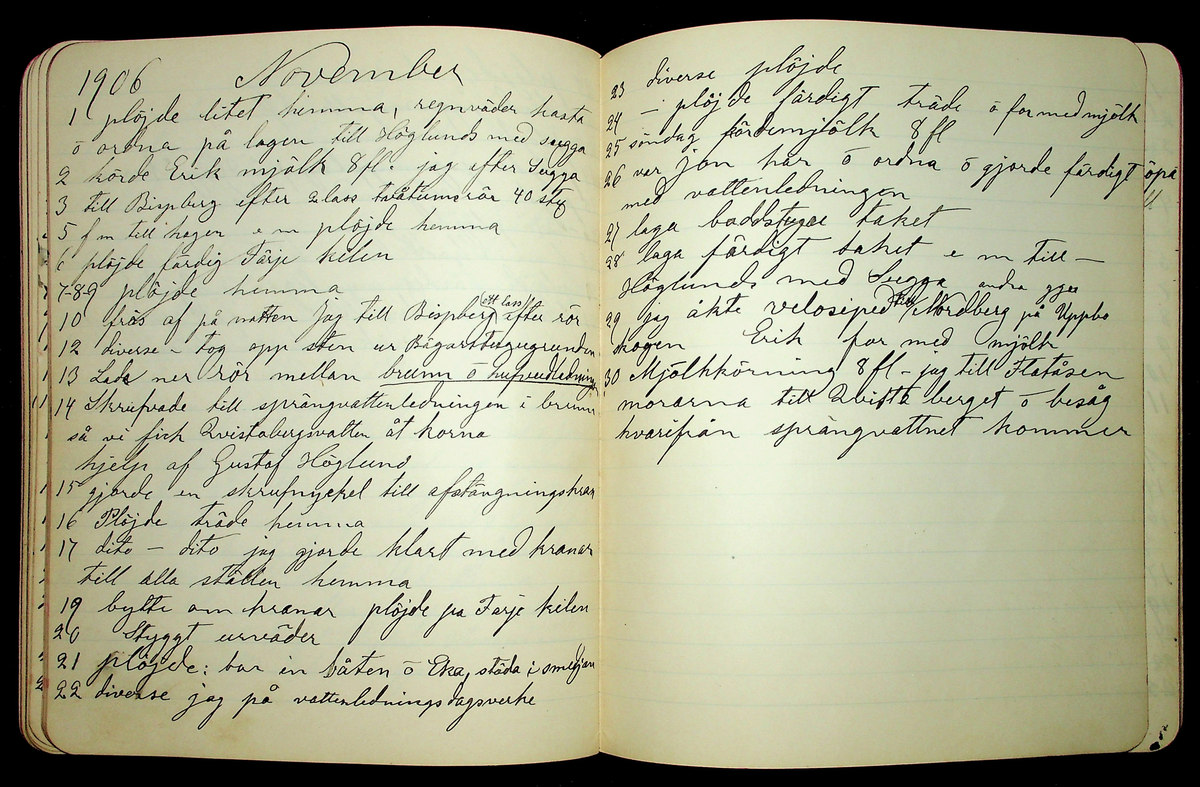 1906 November
1 plöjde litet hemma, regnväder kasta
ō ordna på logen till Höglunds med sugga
2 körde Erik mjölk 8 fl. jag efter Sugga
3 till Bispberg efter 2 lass tvåtumsrör 40 st
5 f m till hagen e m plöjde hemma
6 plöjde färdig Färje kilen
7-8-9 plöjde hemma
10 frös af på natten Jag till Bispberg ett lass efter rör
12 diverse – tog opp sten ur
13 Lade ner rör mellan brunn ō hufvudledning
14 Skrufvade till sprängvattenledningen i brunn
så vi fick Qvistabergsvatten åt korna
hjelp af Gustaf Höglund
15 gjorde en skrufnyckel till afstängningskran
16 Plöjde träde hemma
17 dito – dito jag gjorde klart med kranar
till alla ställen hemma
19 bytte om kranar plöjde på Färje kilen
20 Styggt urväder
21 plöjde: bar in båten ō Eka, städa i smedjan
22 diverse jag på vattenledningsdagsverke
23 diverse plöjde
24 – plöjde färdigt träde ō for med mjölk
25 söndag förde mjölk 8 fl
26 var Jon här ō ordna ō gjorde färdigt
med vattenledningen
27 laga badstuge taket
28 laga färdigt taket e m till –
Höglunds med Sugga andra ggn
29 jag åkte velosiped till Nordberg på Uppbo
skogen Erik for med mjölk
30 Mjölkkörning 8 fl – jag till Flatåsen
morarna till Qvista berget ō besåg
hvarifrån sprängvattnet kommer